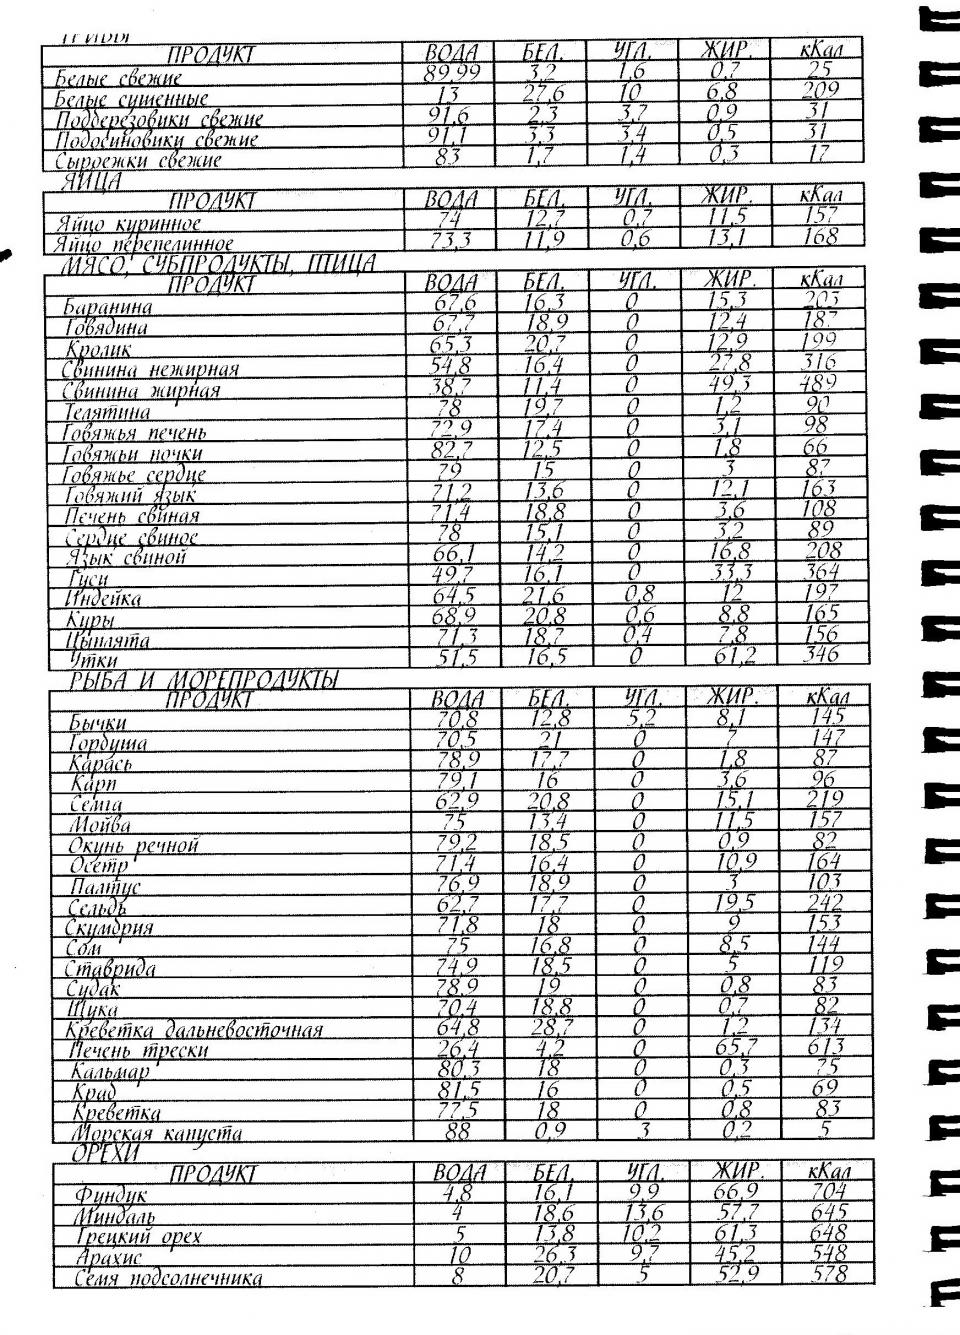 ГРИБЫ
ПРОДУКТ ВОДА БЕЛ. УГЛ. ЖИР. кКал
Белые свежие 89,99 3,2 1,6 0,7 25
Белые сушенные 13 27,6 10 6,8 209
Подберезовики свежие 91,6 2,3 3,7 0,9 31
Подосиновики свежие 91,1 3,3 3,4 0,5 31
Сыроежки свежие 83 1,7 1,4 0,3 17
ЯЙЦА
ПРОДУКТ ВОДА БЕЛ. УГЛ. ЖИР. кКал
Яйцо куринное 74 12,7 0,7 11,5 157
Яйцо перепелинное 73,3 11,9 0,6 13,1 168
МЯСО, СУБПРОДУКТЫ, ПТИЦА
ПРОДУКТ ВОДА БЕЛ. УГЛ. ЖИР. кКал
Баранина 67,6 16,3 0 15,3 203
Говядина 67,7 18,9 0 12,4 187
Кролик 65,3 20,7 0 12,9 199
Свинина нежирная 54,8 16,4 0 27,8 316
Свинина жирная 38,7 11,4 0 49,3 489
Телятина 78 19,7 0 1,2 90
Говяжья печень 72,9 17,4 0 3,1 98
Говяжьи почки 82,7 12,5 0 1,8 66
Говяжье сердце 79 15 0 3 87
Говяжий язык 71,2 13,6 0 12,1 163
Печень свиная 71,4 18,8 0 3,6 108
Сердце свиное 78 15,1 0 3,2 89
Язык свиной 66,1 14,2 0 16,8 208
Гуси 49,7 16,1 0 33,3 364
Индейка 64,5 21,6 0,8 12 197
Куры 68,9 20,8 0,6 8,8 165
Цыплята 71,3 18,7 0,4 7,8 156
Утки 51,5 16,5 0 61,2 346
РЫБА И МОРЕПРОДУКТЫ
ПРОДУКТ ВОДА БЕЛ. УГЛ. ЖИР. кКал
Бычки 70,8 12,8 5,2 8,1 145
Горбуша 70,5 21 0 7 147
Карась 78,9 17,7 0 1,8 87
Карп 79,1 16 0 3,6 96
Семга 62,9 20,8 0 15,1 219
Мойва 75 13,4 0 11,5 157
Окунь речной 79,2 18,5 0 0,9 82
Осетр 71,4 16,4 0 10,9 164
Палтус 76,9 18,9 0 3 103
Сельдь 62,7 17,7 0 19,5 242
Скумбрия 71,8 18 0 9 153
Сом 75 16,8 0 8,5 144
Ставрида 74,9 18,5 0 5 119
Судак 78,9 19 0 0,8 83
Щука 70,4 18,8 0 0,7 82
Креветка дальневосточная 64,8 28,7 0 1,2 134
Печень трески 26,4 4,2 0 65,7 613
Кальмар 80,3 18 0 0,3 75
Краб 81,5 16 0 0,5 69
Креветка 77,5 18 0 0,8 83
Морская капуста 88 0,9 3 0,2 5
ОРЕХИ
ПРОДУКТ ВОДА БЕЛ. УГЛ. ЖИР. кКал
Фундук 4,8 16,1 9,9 66,9 704
Миндаль 4 18,6 13,6 57,7 645
Грецкий орех 5 13,8 10,2 61,3 648
Арахис 10 26,3 9,7 45,2 548
Семя подсолнечника 8 20,7 5 52,9 578